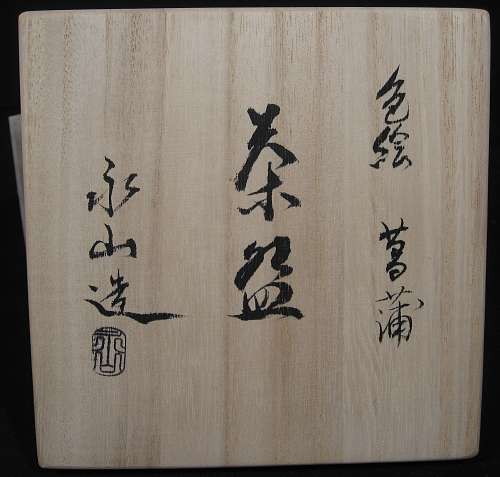 色絵 菖蒲
茶盌
永山造